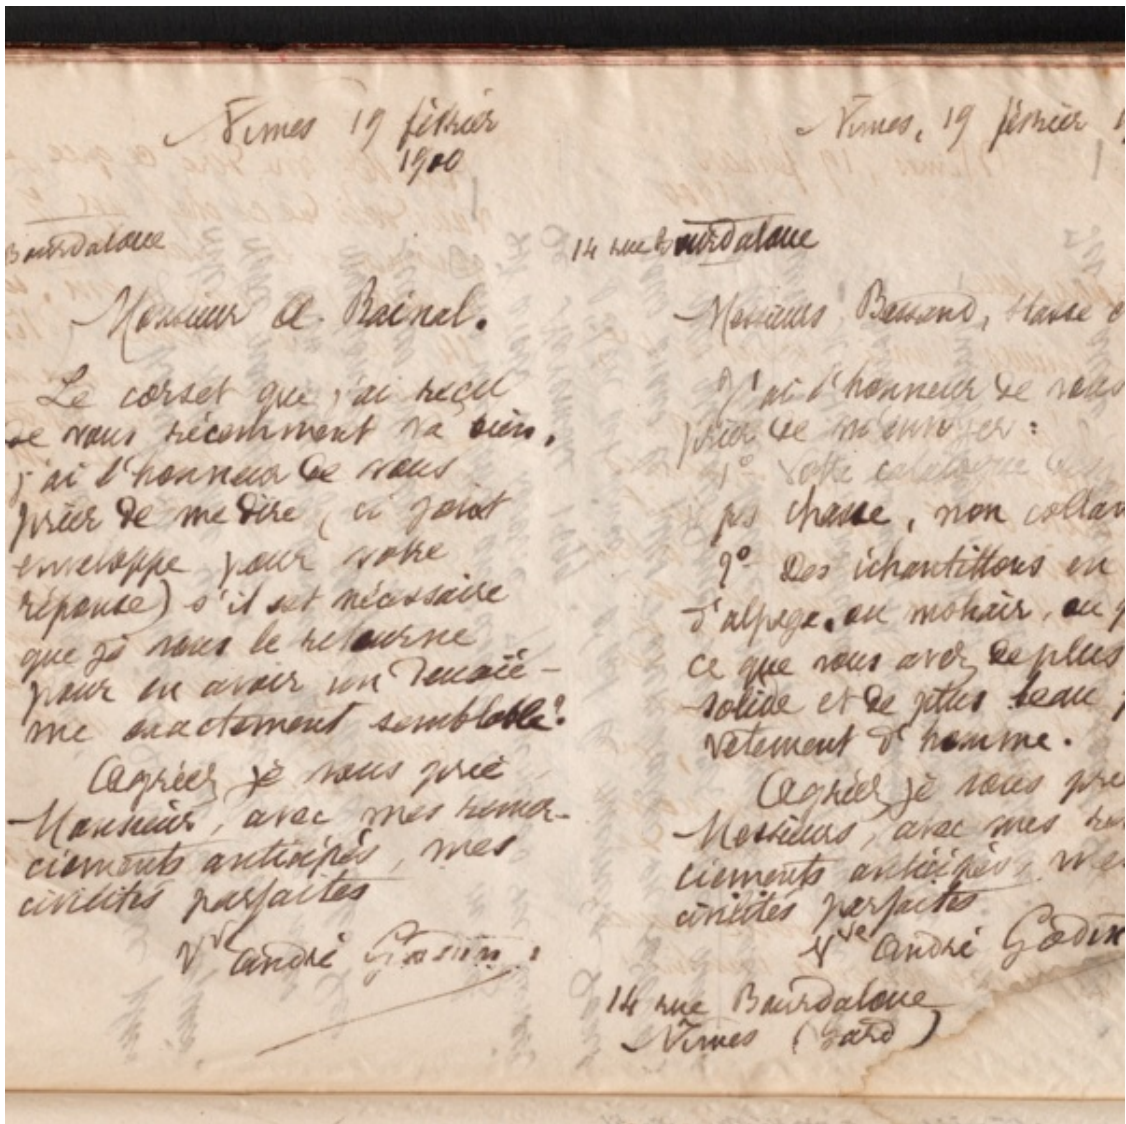 Nimes 19 février
1900
Bourdaloue
Monsieur de Rainal.
Le corset que j'ai reçu
de vous récemment va bien,
j'ai l'honneur de vous
prier de me dire (ci joint
enveloppe pour votre
réponse) s'il est nécessaire
que je vous le retourne
pour en avoir un deuxiè-
me exactement semblable?
Agréez je vous prie
Monsieur, avec mes remer-
ciements anticipés, mes
civilités parfaites
Vve André Godin.
Nimes, 19 février
14 rue Bourdaloue
Messieurs Bessand, Stasse
J'ai l'honneur de vous
prier de m'envoyer:
1° Votre catalogue
chasse, non
2° Des échantillons en
d'alpaga, ou mohair, ou
ce que vous avez de plus
solide et de plus beau
vêtement d'homme.
Agréez je vous prie
Messieurs, avec mes
ciements anticipés, mes
civilités parfaites
Vve André Godin
14 rue Bourdaloue
Nimes (Gard)